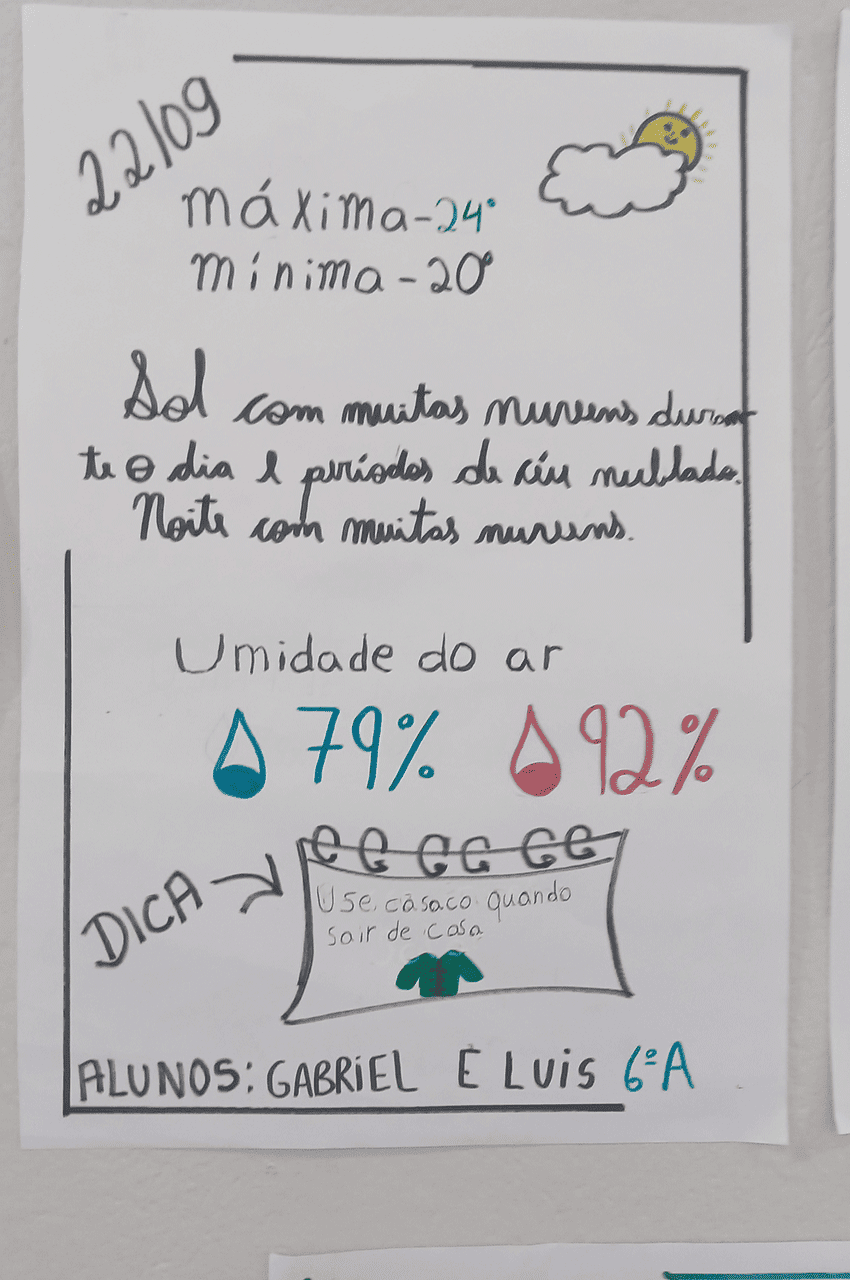 22/09
máxima-24°
mínima-20°
Sol com muitas nuvens duran
te o dia e períodos de céu nublado.
Noite com muitas nuvens.
Umidade do ar
79% 92%
DICA
Use casaco quando
sair de casa
ALUNOS: GABRIEL E LUIS 6ºA